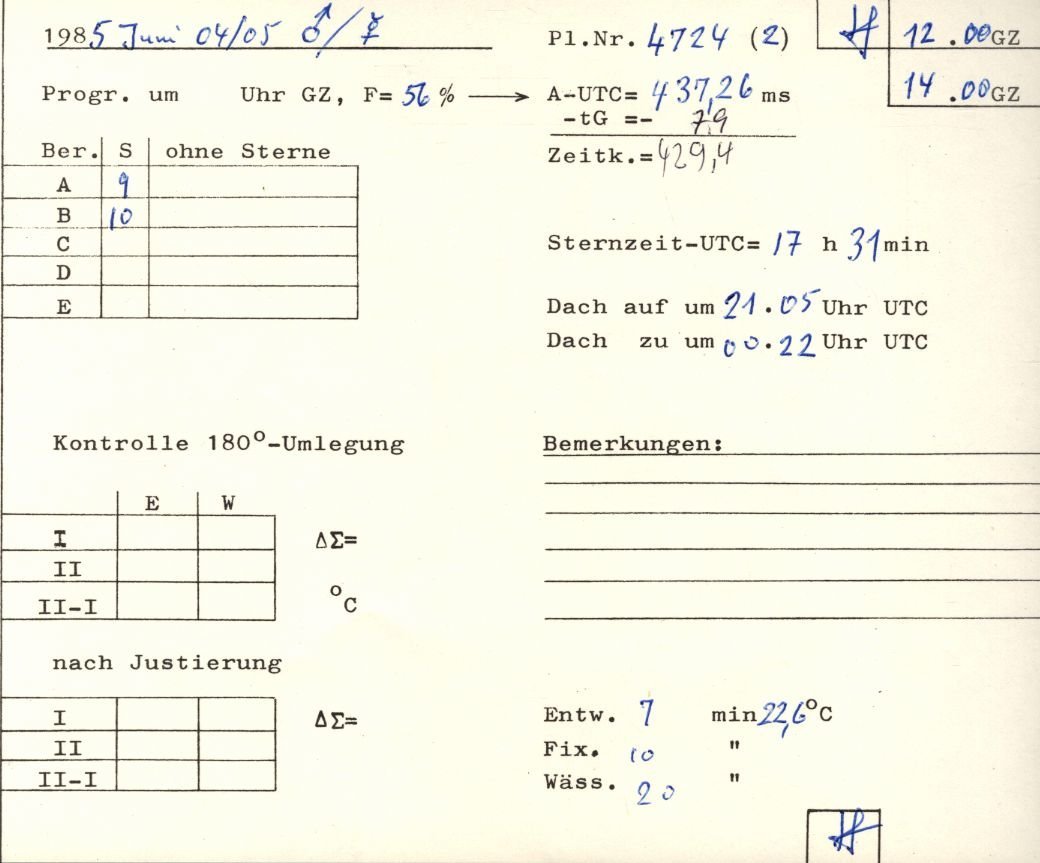 1985 Juni 04/05 ♂/☿
Pl.Nr. 4724 (2)
12.00GZ
14.00GZ
Progr. um Uhr GZ, F= 56 % → A-UTC= 437,26 ms
-tG =- 7,9
Zeitk.=429,4
Ber. S ohne Sterne
A 9
B 10
C
D
E
Sternzeit-UTC= 17 h 31min
Dach auf um 21.05 Uhr UTC
Dach zu um 00.22 Uhr UTC
Kontrolle 180°-Umlegung
E W
I ΔΣ=
II
II-I °C
nach Justierung
I ΔΣ=
II
II-I
Bemerkungen:
Entw. 7 min 22,6°C
Fix. 10 "
Wäss. 20 "